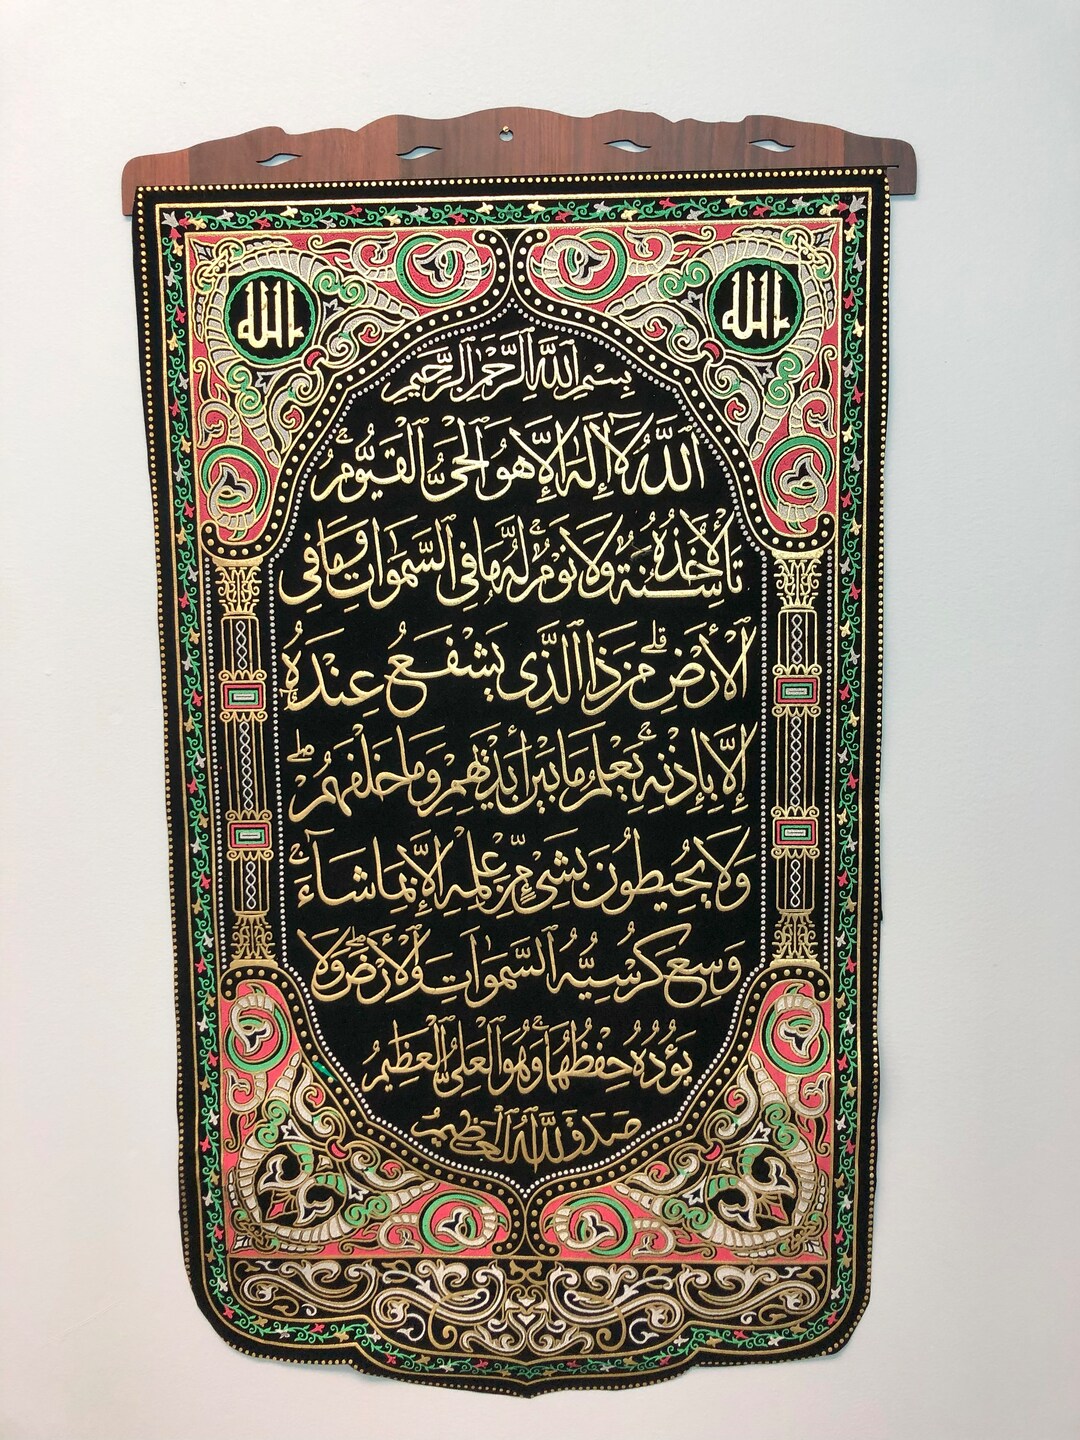 الله
الله
بِسْمِ اللَّهِ الرَّحْمٰنِ الرَّحِيمِ
اللَّهُ لَا إِلٰهَ إِلَّا هُوَ الْحَيُّ الْقَيُّومُ ۚ
لَا تَأْخُذُهُ سِنَةٌ وَلَا نَوْمٌ ۚ لَهُ مَا فِي السَّمٰوَاتِ وَمَا فِي
الْأَرْضِ ۗ مَنْ ذَا الَّذِي يَشْفَعُ عِنْدَهُ
إِلَّا بِإِذْنِهِ ۚ يَعْلَمُ مَا بَيْنَ أَيْدِيهِمْ وَمَا خَلْفَهُمْ ۖ
وَلَا يُحِيطُونَ بِشَيْءٍ مِنْ عِلْمِهِ إِلَّا بِمَا شَاءَ ۚ
وَسِعَ كُرْسِيُّهُ السَّمٰوَاتِ وَالْأَرْضَ ۖ وَلَا
يَؤُدُهُ حِفْظُهُمَا ۚ وَهُوَ الْعَلِيُّ الْعَظِيمُ
صَدَقَ اللَّهُ الْعَظِيمُ